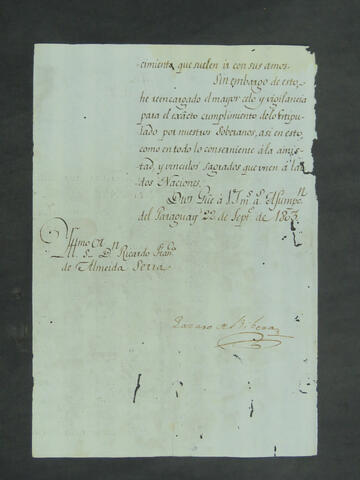 cimiento que suelen ir con sus amos.
Sin embargo de esto,
he reencargado el mayor celo y vigilancia
para el exácto cumplimento de lo estipu-
lado por nuestros Soberanos, asi en esto,
como en todo lo conserniente á la amis-
tad, y vinculos sagrados que unen á las
dos Naciones.
Dios Gue á V.S. ms. as. Asumpn.
del Paraguay 22 de Septe. de 1803.
Dn Ricardo Franco.
de Almeida Serra.
Lazaro de Ribera